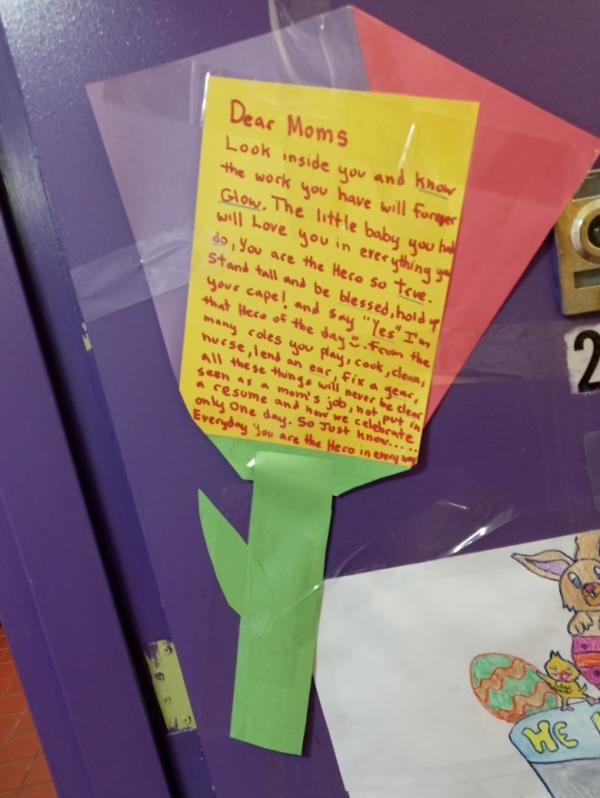 Dear Moms
Look inside you and know
the work you have will forever
Glow. The little baby you had
will Love you in everything you
do, You are the Hero so true.
Stand tall and be blessed, hold up
your cape! and say "Yes" I'm
that Hero of the day. From the
many roles you play, cook, clean,
nurse, lend an ear, fix a gear,
all these things will never be clear
seen as a mom's job, not put in
a resume and how we celebrate
only One day. So Just know.....
Everyday you are the Hero in every way
2
HE